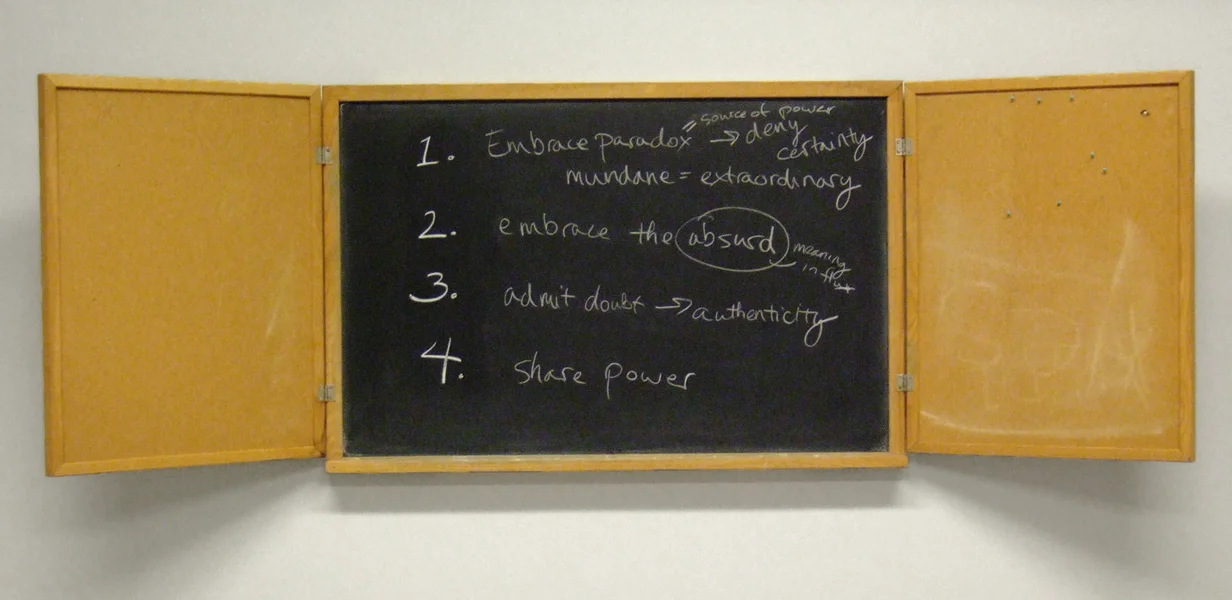 = source of power
1. Embrace paradox → deny
certainty
mundane = extraordinary
2. embrace the absurd
meaning
in
3. admit doubt → authenticity
4. share power